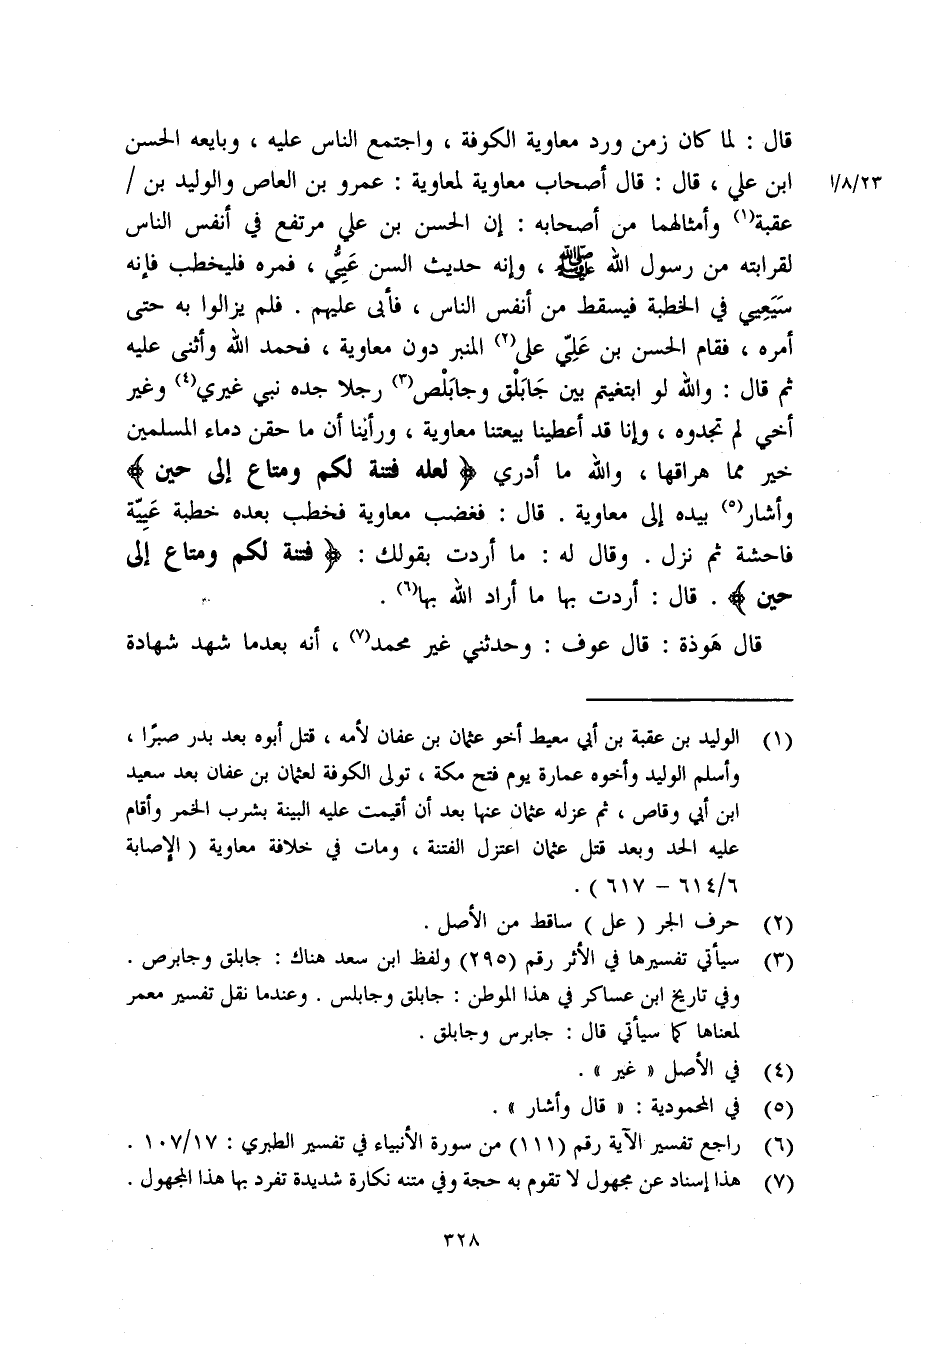 قال : لما كان زمن ورد معاوية الكوفة ، واجتمع الناس عليه ، وبايعه الحسن
ابن علي ، قال : قال أصحاب معاوية لمعاوية : عمرو بن العاص والوليد بن / ١/٨/٢٣
عقبة(١) وأمثالهما من أصحابه : إن الحسن بن علي مرتفع في أنفس الناس
لقرابته من رسول الله ﷺ ، وإنه حديث السن عَيِيُّ ، فمره فليخطب فإنه
سَيَعِيي في الخطبة فيسقط من أنفس الناس ، فأبى عليهم . فلم يزالوا به حتى
أمره ، فقام الحسن بن عَلِيّ على(٢) المنبر دون معاوية ، فحمد الله وأثنى عليه
ثم قال : والله لو ابتغيتم بين جَابَلْق وجابَلْص(٣) رجلا جده نبي غيري(٤) وغير
أخي لم تجدوه ، وإنا قد أعطينا بيعتنا معاوية ، ورأينا أن ما حقن دماء المسلمين
خير مما هراقها ، والله ما أدري ﴿ لعله فتنة لكم ومتاع إلى حين ﴾
وأشار(٥) بيده إلى معاوية . قال : فغضب معاوية فخطب بعده خطبة عَيِيّة
فاحشة ثم نزل . وقال له : ما أردت بقولك : ﴿ فتنة لكم ومتاع إلى
حين ﴾ . قال : أردت بها ما أراد الله بها(٦) .
قال هَوذة : قال عوف : وحدثني غير محمد(٧) ، أنه بعدما شهد شهادة
(١) الوليد بن عقبة بن أبي معيط أخو عثمان بن عفان لأمه ، قتل أبوه بعد بدر صبرًا ،
وأسلم الوليد وأخوه عمارة يوم فتح مكة ، تولى الكوفة لعثمان بن عفان بعد سعيد
ابن أبي وقاص ، ثم عزله عثمان عنها بعد أن أقيمت عليه البينة بشرب الخمر وأقام
عليه الحد وبعد قتل عثمان اعتزل الفتنة ، ومات في خلافة معاوية ( الإصابة
٦/٦١٤ – ٦١٧ ) .
(٢) حرف الجر ( على ) ساقط من الأصل .
(٣) سيأتي تفسيرها في الأثر رقم (٢٩٥) ولفظ ابن سعد هناك : جابلق وجابرص .
وفي تاريخ ابن عساكر في هذا الموطن : جابلق وجابلس . وعندما نقل تفسير معمر
لمعناها كما سيأتي قال : جابرس وجابلق .
(٤) في الأصل « غير » .
(٥) في المحمودية : « قال وأشار » .
(٦) راجع تفسير الآية رقم (١١١) من سورة الأنبياء في تفسير الطبري : ١٠٧/١٧ .
(٧) هذا إسناد عن مجهول لا تقوم به حجة وفي متنه نكارة شديدة تفرد بها هذا المجهول .
٣٢٨